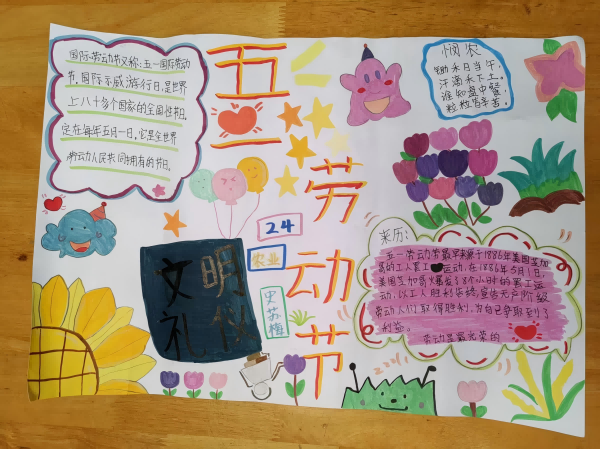 国际劳动节又称：五一国际劳动
节、国际示威游行日，是世界
上八十多个国家的全国性节日。
定在每年五月一日，它是全世界
劳动人民共同拥有的节日。
五一
劳动节
悯农
锄禾日当午，
汗滴禾下土。
谁知盘中餐，
粒粒皆辛苦。
24
农业
史苏梅
文明
礼仪
来历：
五一劳动节最早来源于1886年美国芝加
哥的工人罢工运动，在1886年5月1日，
美国芝加哥
8个小时的罢工运
动，以工人胜利告终，宣告无产阶级
劳动人们取得胜利，为自己争取到了
利益。
劳动是最光荣的